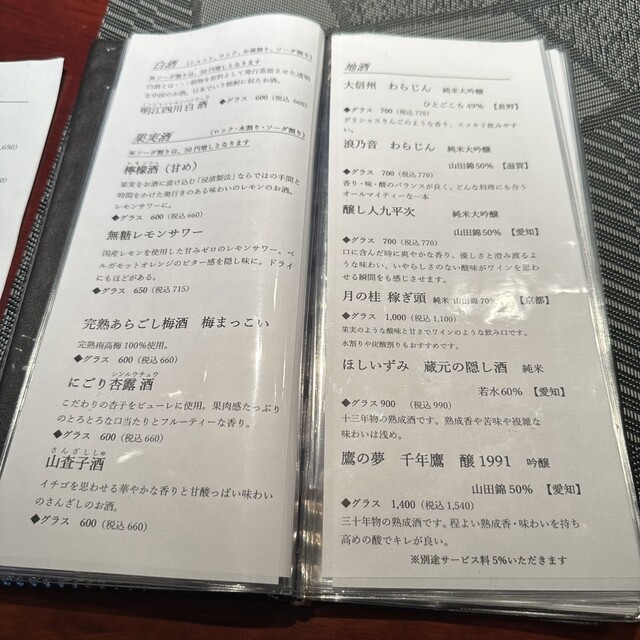 白酒 (ショット、ロック、お湯割り、ソーダ割り)
※ソーダ割りは、50円増しとなります
明江西川白酒 ◆グラス 600 (税込 660)
果実酒 (ロック・水割り・ソーダ割り)
※ソーダ割りは、50円増しとなります
檸檬酒 (甘め)
果実をお酒に漬け込む「浸漬製法」ならではの手間と
時間をかけた奥行きのある味わいのレモンのお酒。
レモンサワーに。
◆グラス 600 (税込 660)
無糖レモンサワー
国産レモンを使用した甘みゼロのレモンサワー。ベ
ルガモットオレンジのビター感を隠し味に。ドライ
にもほどがある。
◆グラス 650 (税込 715)
完熟あらごし梅酒 梅まっこい
完熟南高梅 100%使用。
◆グラス 600 (税込 660)
シンルウチュウ
にごり杏露酒
こだわりの杏子をピューレに使用。果肉感たっぷり
のとろとろな口当たりとフルーティーな香り。
◆グラス 600 (税込 660)
さんざししゅ
山査子酒
イチゴを思わせる華やかな香りと甘酸っぱい味わい
のさんざしのお酒。
◆グラス 600 (税込 660)
地酒
大信州 わらじん 純米大吟醸
ひとごこち 49% 【長野】
◆グラス 700 (税込 770)
デリシャスりんごのような香り、スッキリ飲みやす
い。
浪乃音 わらじん 純米大吟醸
山田錦 50% 【滋賀】
◆グラス 700 (税込 770)
香り・味・酸のバランスが良く。どんな料理にも合う
オールマイティーな一本
醸し人九平次 純米大吟醸
山田錦 50% 【愛知】
◆グラス 700 (税込 770)
口に含んだ時に爽やかな香り、優しさと澄み渡るよ
うな味わい、いやらしさのない酸味がワインを思わ
せる瞬間をも感じさせます。
月の桂 稼ぎ頭 純米 山田錦 70% 【京都】
◆グラス 1,000 (税込 1,100)
果実のような酸味と甘さでワインのような飲み口です。
水割りや炭酸割りもおすすめです。
ほしいずみ 蔵元の隠し酒 純米
若水 60% 【愛知】
◆グラス 900 (税込 990)
十三年物の熟成酒です。熟成香や苦味や複雑な
味わいは浅め。
鷹の夢 千年鷹 醸 1991 吟醸
山田錦 50% 【愛知】
◆グラス 1,400 (税込 1,540)
三十年物の熟成酒です。程よい熟成香・味わいを持ち
高めの酸でキレが良い。
※別途サービス料 5%いただきます